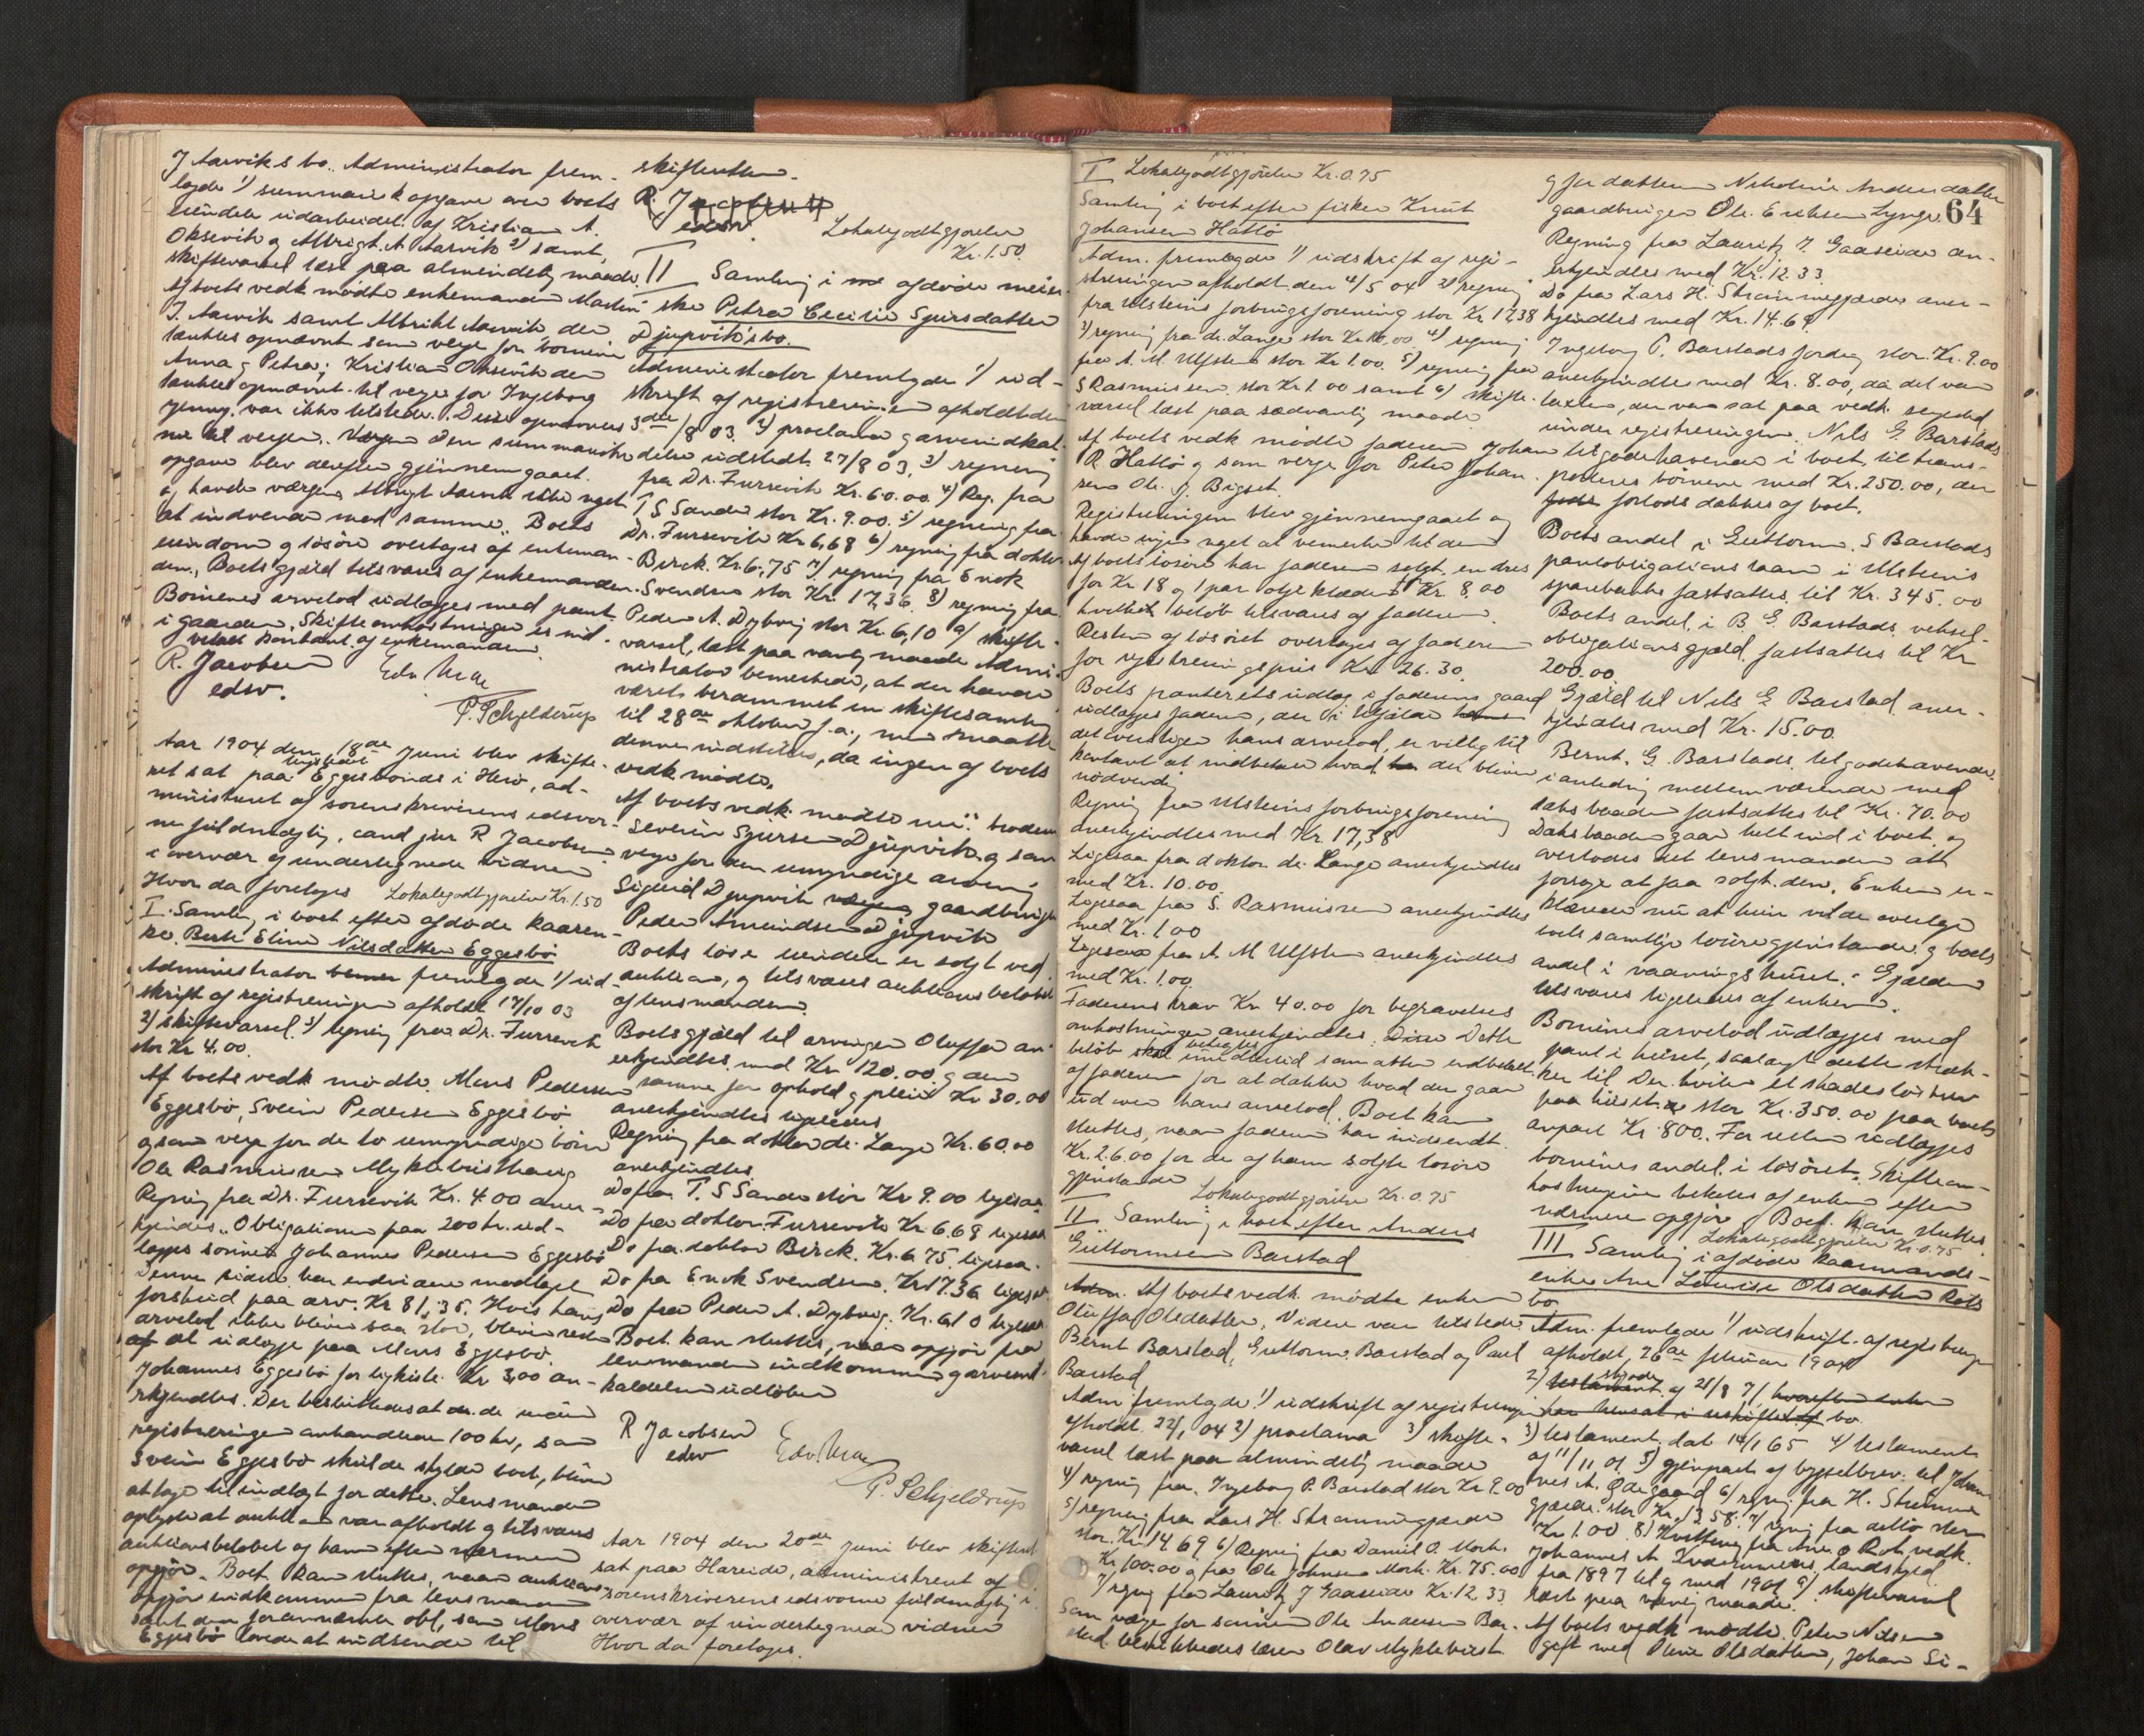 J Aarviks bo. Administrator frem-
lagde 1) summarisk opgave over boets
eiendele udarbeidet af Kristian A.
Oksevik og Albrigt A Aarvik 2) samt
skiftevarsel læst paa almindelig maade
Af boets vedk mødte enkemanden Martin
J. Aarvik samt Albrikt Aarvik, der
tænktes opnævnt som verge for børnene
Anna og Petra; Kristian Oksevik den
tænktes opnævnt til verge for Ingeborg
Jenny, var ikke tilstede. Disse opnævnes
nu til verger. Den summariske
opgave blev derefter gjennemgaaet
og havde værgen Albrigt Aarvik ikke noget
at indvende mod samme. Boets
eiendom og løsøre overtages af enkeman-
den. Boets gjæld tilsvares af enkemanden.
Børnenes arvelod udlægges med pant
i gaarden. Skifteomkostninger er ind-
betalt kontant af enkemanden.
R. Jacobsen
edsv.
P. Schjelderup
Aar 1904 den 18de Juni blev skifte-
ret sat paa Eggesbønes i Herø, ad-
ministreret af sorenskriverens edsvor-
ne fuldmægtig, cand jur R Jacobsen
i overvær af undertegnede vidner
Hvor da foretoges Lokalegodtgjørelse Kr. 1.50
I. Samling i boet efter afdøde kaaren-
ke Berte Eline Nilsdatter Eggesbø
Administrator fremlagde 1) ud-
skrift af registreringen afholdt 17/10 03
2) skiftevarsel. 3) regning fra Dr. Furrevik
stor Kr 4.00.
Af boets vedk mødte. Mons Pedersen
Eggesbø, Svein Pedersen Eggesbø
og som verge for de to umyndige børn
Ole Rasmussen Myklebusthaug
Regning fra Dr. Furrevik Kr. 4.00 aner-
kjendes. Obligationen paa 200 kr. ud-
lægges sønnen Johannes Pedersen Eggesbø
Denne siden har endvidere modtaget
forskud paa arv. Kr 81,35. Hvis hans
arvelod ikke bliver saa stor, bliver resten
af at udlægge paa Mons Eggesbø.
Johannes Eggesbø for ligkiste Kr 3,00 an-
erkjendtes. Der besluttedes at de under
registreringen anhandlede 100 kr, som
Svein Eggesbø skulde skylde boet, bliver
at tage til indtægt for dette. Lensmanden
oplyste at auktion var afholdt og tilsvares
auktionsbeløbet af ham efter nærmere
opgjør. Boet kan sluttes, naar auktions-
opgjør indkommer fra lensmanden
samt den forannævnte obl, som Mons
Eggesbø lovede at indsende til
skifteretten.
R. Jacobsen
edsv.
Lokalegodtgjørelse
Kr. 1.50.
II Samling i afdøde meier-
ske Petra Cecilie Sjursdatter
Djupvik's bo.
Administrator fremlagde 1) ud-
skrift af registreringen afholdt den
3die/8 03. 2) proclama og arveindkal-
delse udstedt 27/8 03, 3) regning
fra Dr. Furrevik Kr. 60.00. 4) Reg. fra
T S Sande stor Kr. 9.00. 5) regning fra
Dr. Furrevik Kr 6,68 6) regning fra doktor
Birck. Kr. 6,75 7) regning fra Enok
Svendsen stor Kr. 17,36. 8) regning fra
Peder A. Dybvig stor Kr 6,10 9) skifte-
varsel, læst paa vanlig maade Admi-
nistrator bemerkede, at der havde
været berammet en skiftesamling
til 28de oktober f. a., men maatte
denne indstilles, da ingen af boets
vedk mødte.
Af boets vedk. mødte nu: broderen
Severin Sjursen Djupvik og som
verge for den umyndige arving
Sigurd Djupvik gaardbruger
Peder Amundsen Djupvik
Boets løse eiendele er solgt ved
auktion, og tilsvares auktionsbeløbet
af lensmanden.
Boets gjæld til arvingen Oluffa an-
erkjendtes med Kr. 120.00 og den
samme for ophold og pleie Kr 30.00
anerkjendtes ligeledes
Regning fra doktor de. Lange Kr. 60.00
anerkjendtes.
Do fra T. S Sande stor Kr 9.00 ligesaa.
Do fra doktor Furrevik Kr. 6.68 ligesaa
Do fra doktor Birck. Kr. 6.75. ligesaa.
Do fra Enok Svendsen. Kr. 17.36 ligesaa
Do fra Peder A. Dybvig. Kr. 6.10 ligesaa.
Boet kan sluttes, naar opgjør fra
lensmanden indkommer og arveind-
kaldelsen udløber
R Jacobsen
edsv
P. Schjelderup
Aar 1904 den 20de Juni blev skifteret
sat paa Hareide, administreret af
sorenskriverens edsvorne fuldmægtig i
overvær af undertegnede vidner
Hvor da foretoges.
64
I Lokalegodtgjørelse Kr. 0.75
Samling i boet efter fisker Knut
Johansen Hatlø
Adm. fremlagde 1) udskrift af regi-
streringen afholdt den 4/5 04 2) regning
fra Ulsteins forbrugsforening stor Kr 17,38
3) regning fra dr. Lange stor Kr 10.00. 4) regning
fra A. M. Ulfsten stor Kr 1.00. 5) regning fra
S Rasmussen stor Kr 1.00 samt 6) skifte-
varsel læst paa sædvanlig maade
Af boets vedk mødte faderen Johan
R Hatlø og som verge for Peter Johan-
sen Ole. J. Bigset.
Registreringen blev gjennemgaaet og
havde ingen noget at bemerke til den
Af boets løsøre har faderen solgt en dres
for Kr 18 og 1 par oljeklæder Kr 8,00
hvilket beløb tilsvares af faderen.
Resten af løsøret overtages af faderen
for registreringspris Kr 26.30.
Boets panterets udlæg i faderens gaard
udlægges faderen, der i tilfælde
det overstiger hans arvelod, er villig til
kontant at indbetale hvad der bliver
nødvendig
Regning fra Ulsteins forbrugsforening
anerkjendtes med Kr. 17,38
Ligesaa fra doktor de. Lange anerkjendtes
med Kr. 10.00.
Ligesaa fra S. Rasmussen anerkjendtes
med Kr. 1 00
Ligesaa fra A. M Ulfsten anerkjendtes
med Kr. 1.00.
Faderens krav Kr 40.00 for begravelses
omkostninger anerkjendtes. Dette
beløb imidlertid som atter indbetalt
af faderen for at dække hvad der gaar
ud over hans arvelod. Boet kan
sluttes, naar faderen har indsendt
Kr. 26.00 for de af ham solgte løsøre
gjenstande
Lokalegodtgjørelse Kr. 0.75
II Samling i boet efter Anders
Guttormsen Barstad
Adm. Af boets vedk. mødte enken
Oluffa Olsdatter. Videre var tilstede
Bernt Barstad, Guttorm. Barstad og Paul
Barstad
Adm fremlagde 1) udskrift af registreringen
afholdt. 22/1 04 2) proclama 3) skifte-
varsel læst paa almindelig maade
4) regning fra. Ingeborg P. Barstad stor Kr 9.00
5) regning fra Lars H. Strømmegjerde
stor. Kr. 14.69 6) Regning fra Daniel O. Mork.
Kr 100.00 og fra Ole Johnsen Mork. Kr. 75.00
7) regning fra Lauritz J Gaaseide Kr. 12.33
Som værge for sønnen Ole Andersen Bar-
stad. beskikkedes læreren Olav Myklebust.
og for datteren Nikoline Andersdatter
gaardbruger Ole. Eriksen Lynge
Regning fra Lauritz J. Gaaseide an-
erkjendtes med Kr. 12.33.
Do fra Lars H. Strømmegjerde aner-
kjendtes med Kr. 14.69
Ingeborg P. Barstads fordring stor. Kr. 9.00
anerkjendtes med Kr. 8.00, da det var
taxten, der var sat paa vedk. seyeld
under registreringen. Nils G. Barstads
tilgodehavende i boet, til trans-
porteres børnene med Kr. 250.00, der
forlods dækkes af boet.
Boets andel i Guttorm. S Barstads
pantobligationslaan i Ulsteins
sparebank fastsattes til Kr. 345.00
Boets andel i B. G. Barstads veksel-
obligationsgjæld. fastsattes til Kr
200.00.
Gjæld til Nils G Barstad aner-
kjendtes med Kr. 15.00.
Bernt. G. Barstads tilgodehavende
i anledning mellemværende med
baaden fastsattes til Kr. 70.00
Daksbaaden gaar helt ind i boet, og
overlodes det lensmanden att
forsøge at faa solgt den. Enken er-
klærede nu at hun vilde overtage
boets samtlige løsøregjenstande og boets
andel i vaaningshuset. Gjælden
tilsvares ligeledes af enken.
Børnenes arvelod udlægges med
pant i huset, saalangt dette stræk-
ker til. Der hviler et skadesløsbrev
paa huset stor Kr. 350.00 paa boets
anpart Kr. 800. For resten udlægges
børnenes andel i løsøret. Skifteom-
kostningerne betales af enken efter
nærmere opgjør. Boet kan sluttes.
Lokalegodtgjørelse Kr 0.75
III Samling i afdøde kaarmands-
enke Ane Lovise Olsdatter Røts
bo.
Adm. fremlagde 1) udskrift af registreringen
afholdt, 26de februar 1904
2) skjøde af 28/8 71 hvorefter enken
hensat i uskiftet bo
3) testament dat 14/1 65 4) testament
af 11/11 01 5) gjenpart af bygselbrev til Johan-
nes A. Ødegaard 6) regning fra H. Strømme
gjærde. stor Kr. 13.58. 7) regning fra ditto stor
Kr 1.00 8) Kvittering fra Ane. O Røt, vedk.
Johannes A landskyld.
fra 1897 til og med 1901 9) skiftevarsel
læst paa vanlig maade.
Af boets vedk mødte. Peter Nilsen
gift med Oline Olsdatter, Johan Si-